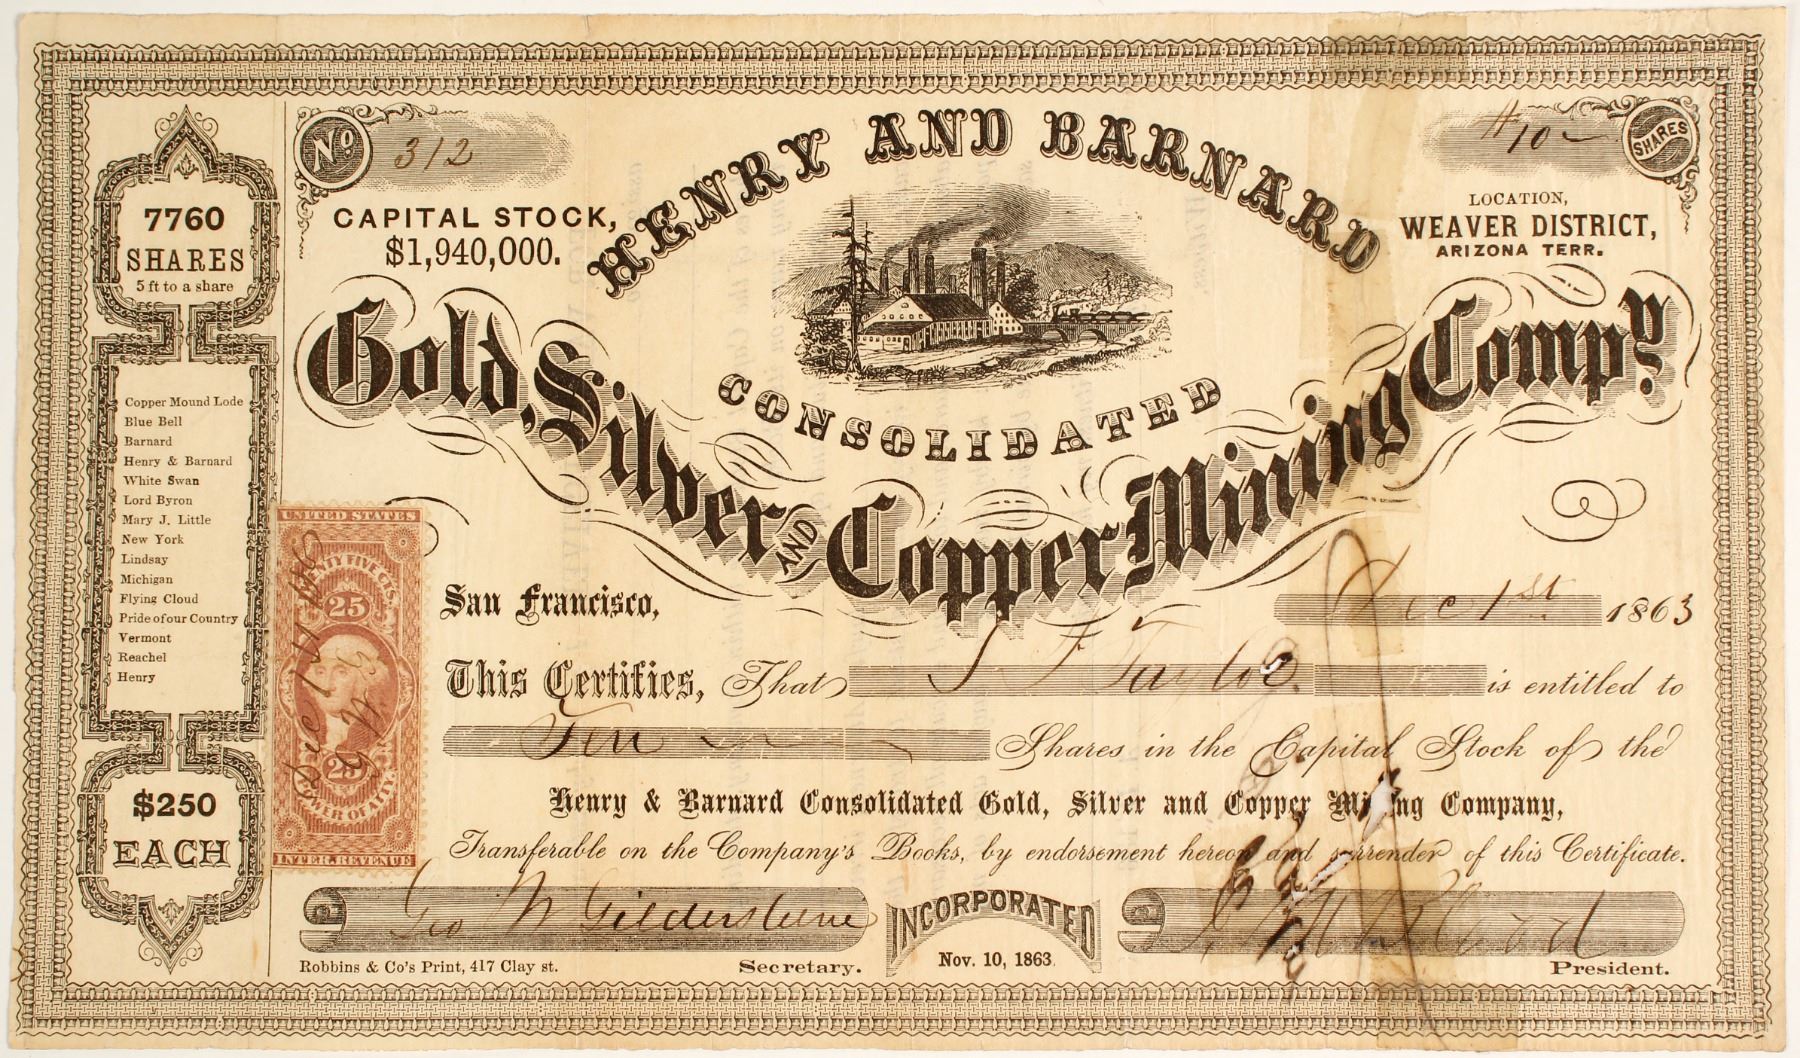 No 312
# 10
SHARES
HENRY AND BARNARD
CAPITAL STOCK,
$1,940,000.
LOCATION,
WEAVER DISTRICT,
ARIZONA TERR.
CONSOLIDATED
Gold, Silver AND Copper Mining Compy.
7760
SHARES
5 ft to a share
Copper Mound Lode
Blue Bell
Barnard
Henry & Barnard
White Swan
Lord Byron
Mary J. Little
New York
Lindsay
Michigan
Flying Cloud
Pride of our Country
Vermont
Reachel
Henry
$250
EACH
UNITED STATES
TWENTY FIVE CTS.
25
25
POWER OF ATTY.
INTER. REVENUE
Dec 1st
San Francisco, Dec 1st 1863
This Certifies, That Taylor is entitled to
Ten Shares in the Capital Stock of the
Henry & Barnard Consolidated Gold, Silver and Copper Mining Company,
Transferable on the Company's Books, by endorsement hereon and surrender of this Certificate.
Geo W Gildersleeve
INCORPORATED
Nov. 10, 1863.
Robbins & Co's Print, 417 Clay st.
Secretary.
President.